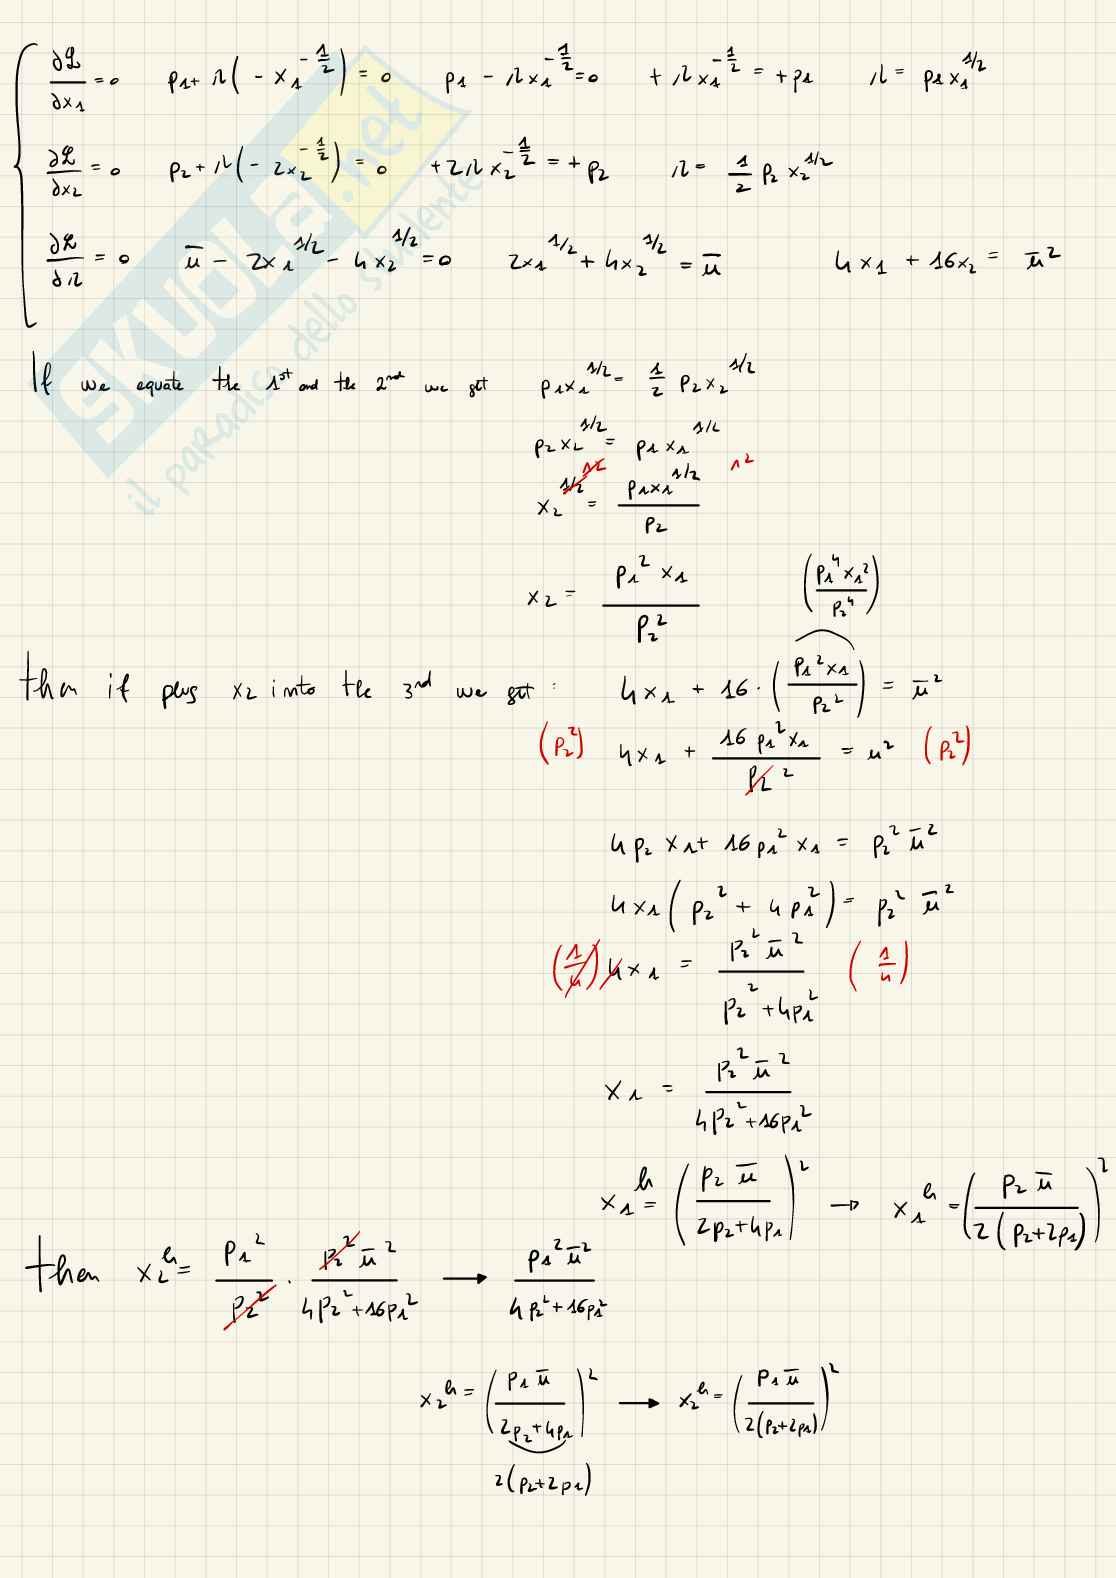 ∂ℒ/∂x₁ = 0  p₁ + λ(- x₁^(-1/2)) = 0  p₁ - λx₁^(-1/2) = 0  + λx₁^(-1/2) = + p₁  λ = p₁x₁^(1/2)
∂ℒ/∂x₂ = 0  p₂ + λ(- 2x₂^(-1/2)) = 0  + 2λx₂^(-1/2) = + p₂  λ = 1/2 p₂x₂^(1/2)
∂ℒ/∂λ = 0  ū - 2x₁^(1/2) - 4x₂^(1/2) = 0  2x₁^(1/2) + 4x₂^(1/2) = ū  4x₁ + 16x₂ = ū²
If we equate the 1st and the 2nd we get  p₁x₁^(1/2) = 1/2 p₂x₂^(1/2)
p₂x₂^(1/2) = p₁x₁^(1/2)
x₂^(1/2) = p₁x₁^(1/2)/p₂
x₂ = p₁²x₁/p₂²  (p₁⁴x₁²/p₂⁴)
then if plug x₂ into the 3rd we get :  4x₁ + 16 · (p₁²x₁/p₂²) = ū²
(p₂²) 4x₁ + 16p₁²x₁/p₂² = u² (p₂²)
4p₂x₁ + 16p₁²x₁ = p₂²ū²
4x₁(p₂² + 4p₁²) = p₂²ū²
(1/4) 4x₁ = p₂²ū²/(p₂² + 4p₁²) (1/4)
x₁ = p₂²ū²/(4p₂² + 16p₁²)
x₁^h = (p₂ū/(2p₂ + 4p₁))² → x₁^h = (p₂ū/(2(p₂ + 2p₁)))²
then x₂^h = p₁²/p₂² · p₂²ū²/(4p₂² + 16p₁²) → p₁²ū²/(4p₂² + 16p₁²)
x₂^h = (p₁ū/(2p₂ + 4p₁))² → x₂^h = (p₁ū/(2(p₂ + 2p₁)))²
2(p₂ + 2p₁)
SKUOLA.net
il paradiso dello studente